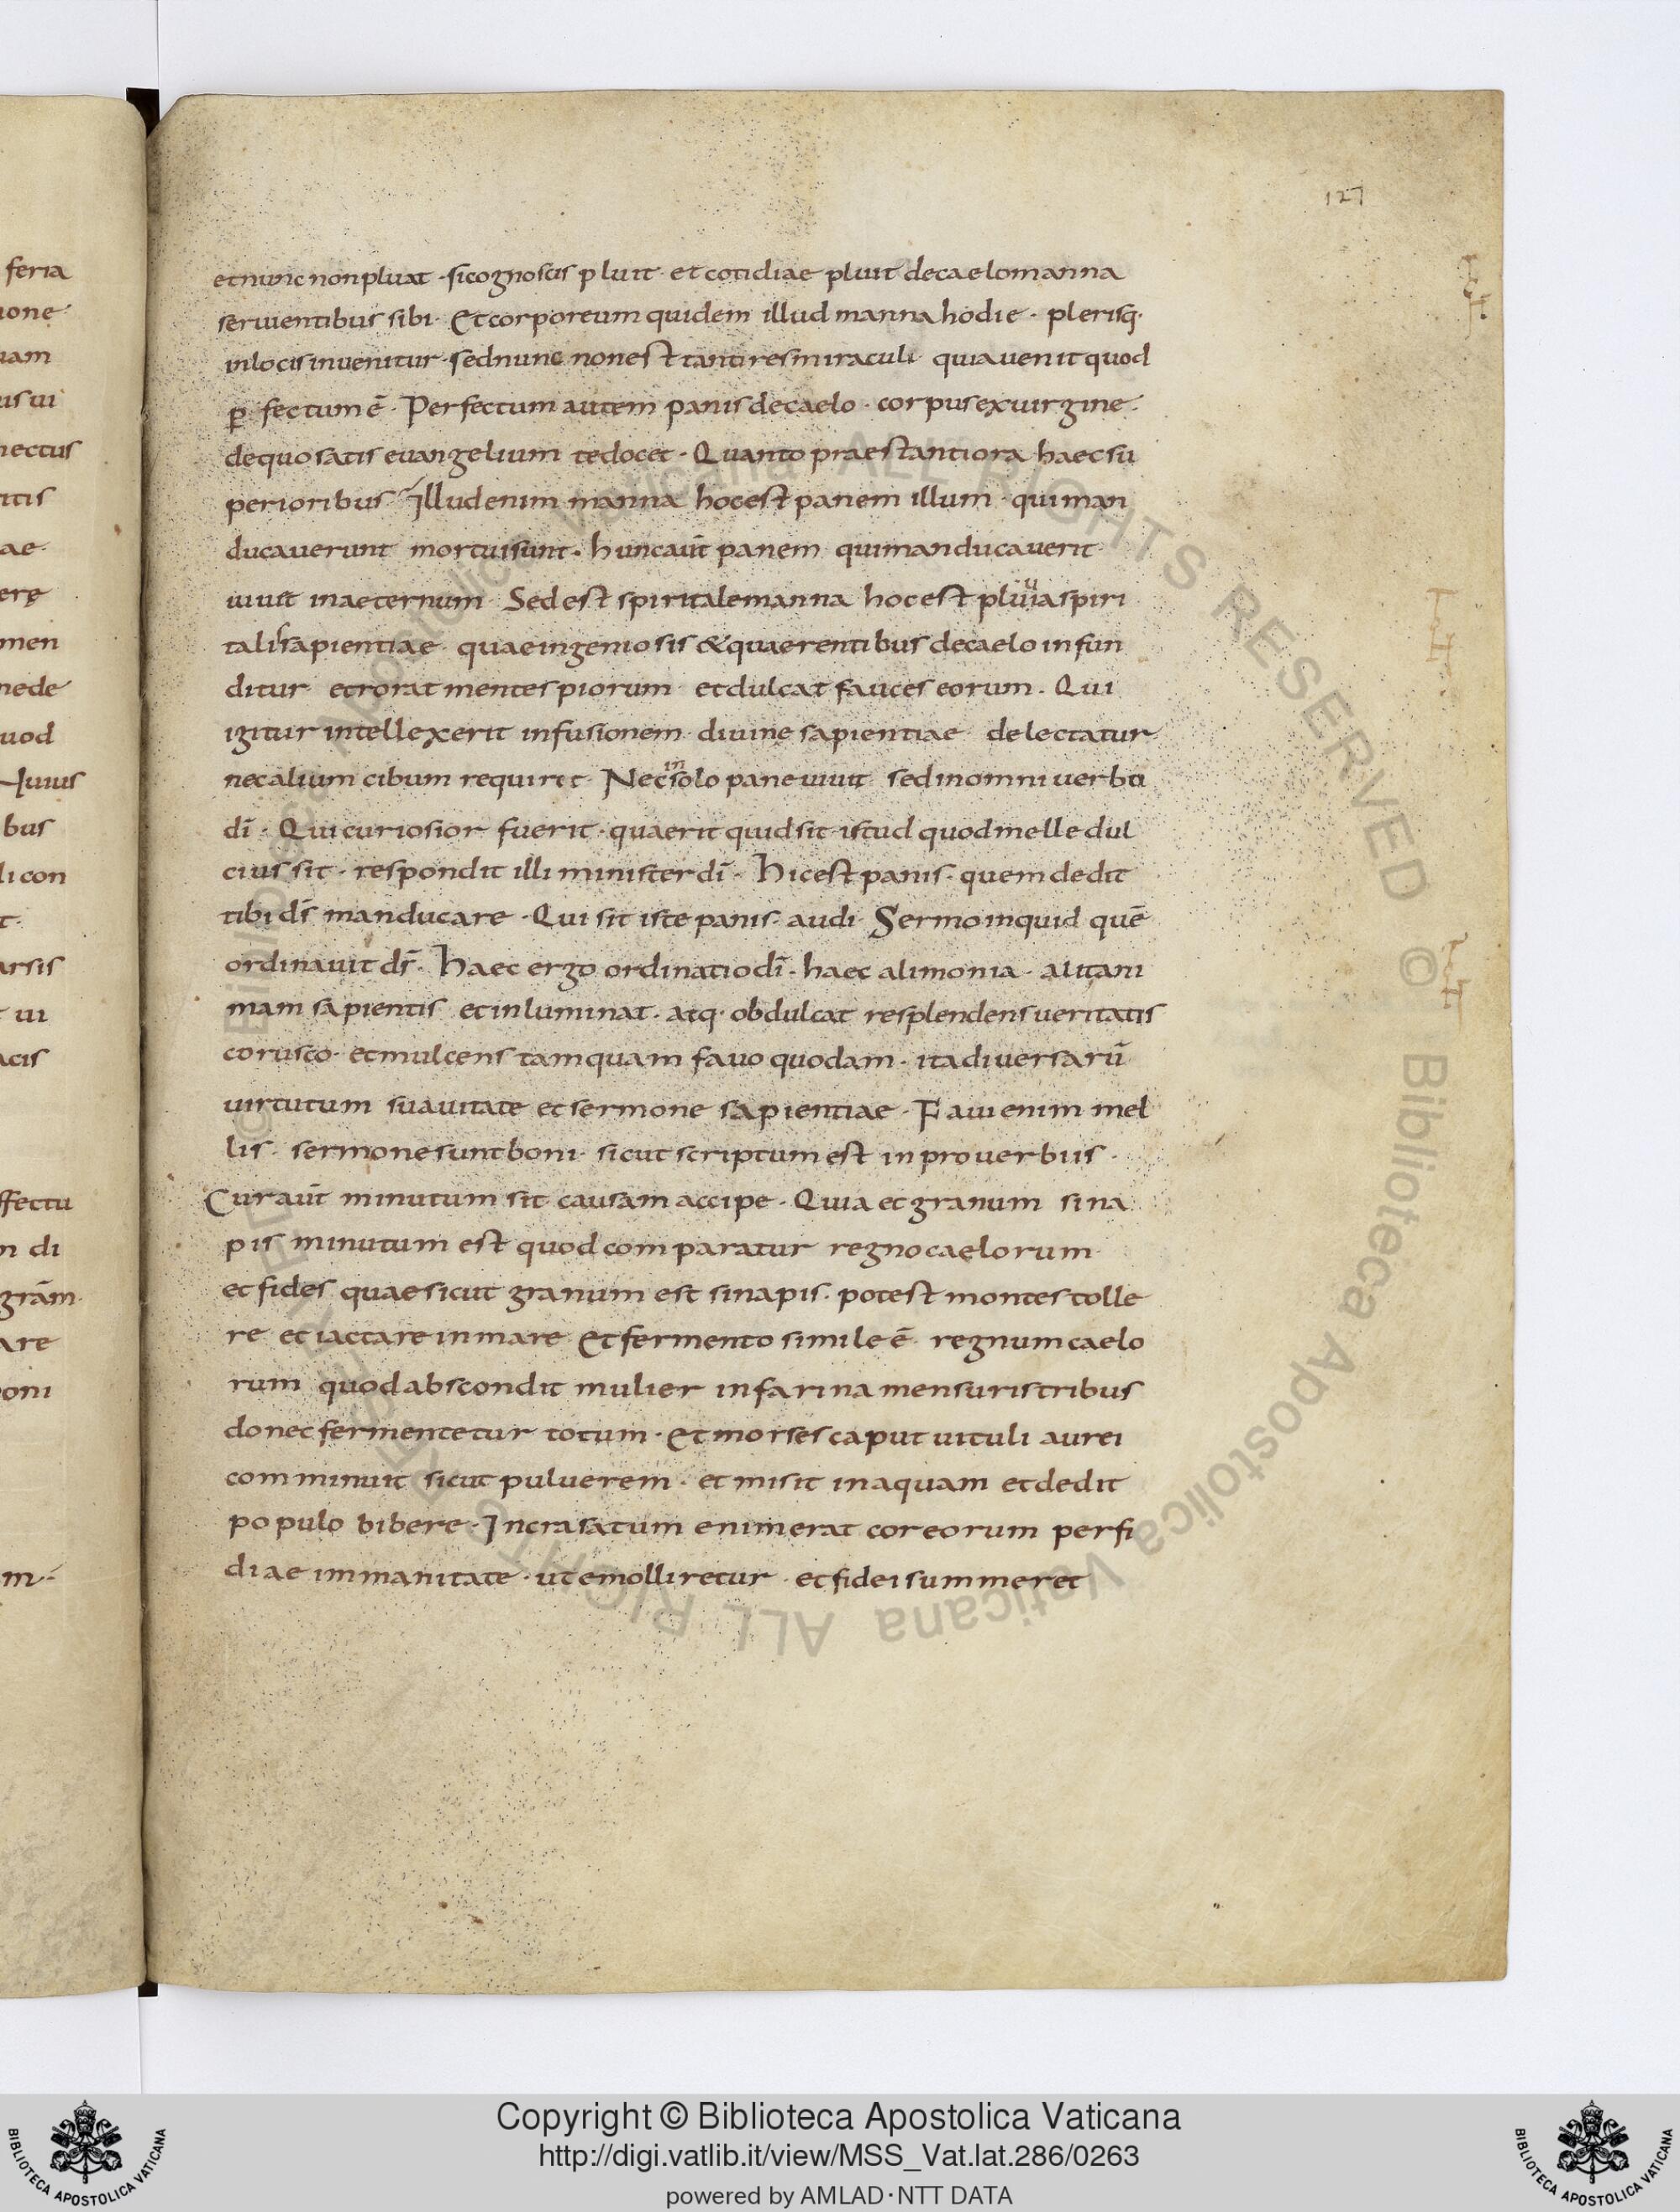 127
feria
ione
uam
us ui
nectus
itis
ae
erę
men
nede
uod
huius
bus
li con
t
arsis
t ui
acis
ffectu
n di
grām
are
oni
m
et nunc non pluat · si cognoscis pluit · et cotidiae pluit de caelo manna
seruientibus sibi · Et corporeum quidem illud manna hodie · plerisq·
in locis inuenitur · sed nunc non est tanti res miraculi quia uenit quod
ꝑfectum ē · Perfectum autem panis de caelo · corpus ex uirgine ·
de quo satis euangelium te docet · Quanto praestantiora haec su
perioribus Illud enim manna hoc est panem illum · qui man
ducauerunt mortui sunt · hunc aūt panem qui manducauerit
uiuet in aeternum Sed est spiritale manna hoc est pluuia spiri
talis sapientiae quae ingeniosis & quaerentibus de caelo infun
ditur et rorat mentes piorum et dulcat fauces eorum · Qui
igitur intellexerit infusionem diuine sapientiae delectatur
nec alium cibum requiret · Nec in solo pane uiuit sed in omni uerbo
dī · Qui curiosior fuerit · quaerit quid sit istud quod melle dul
cius sit · respondit illi minister dī · Hic est panis · quem dedit
tibi dſ̄ manducare · Qui sit iste panis audi Sermo inquid quē
ordinauit dſ̄ · Haec ergo ordinatio dī · haec alimonia · alit ani
mam sapientis et inluminat · atq· obdulcat resplendens ueritatis
corusco · et mulcens tamquam fauo quodam · ita diuersarū
uirtutum suauitate et sermone sapientiae · Faui enim mel
lis · sermone sunt boni · sicut scriptum est in prouerbiis ·
Cur aūt minutum sit causam accipe · Quia et granum sina
pis minutum est quod comparatur regno caelorum
et fides quae sicut granum est sinapis · potest montes tolle
re et iactare in mare Et fermento simile ē regnum caelo
rum quod abscondit mulier in farina mensuris tribus
donec fermentetur totum · Et moises caput uituli aurei
comminuit sicut puluerem · et misit in aquam et dedit
populo bibere · Incrasatum enim erat cor eorum perfi
diae immanitate · ut emolliretur · et fidei summeret
Copyright © Biblioteca Apostolica Vaticana
http://digi.vatlib.it/view/MSS_Vat.lat.286/0263
powered by AMLAD · NTT DATA
BIBLIOTECA APOSTOLICA VATICANA
BIBLIOTECA APOSTOLICA VATICANA
© Biblioteca Apostolica Vaticana ALL RIGHTS RESERVED © Biblioteca Apostolica Vaticana ALL RIGHTS RESERVED